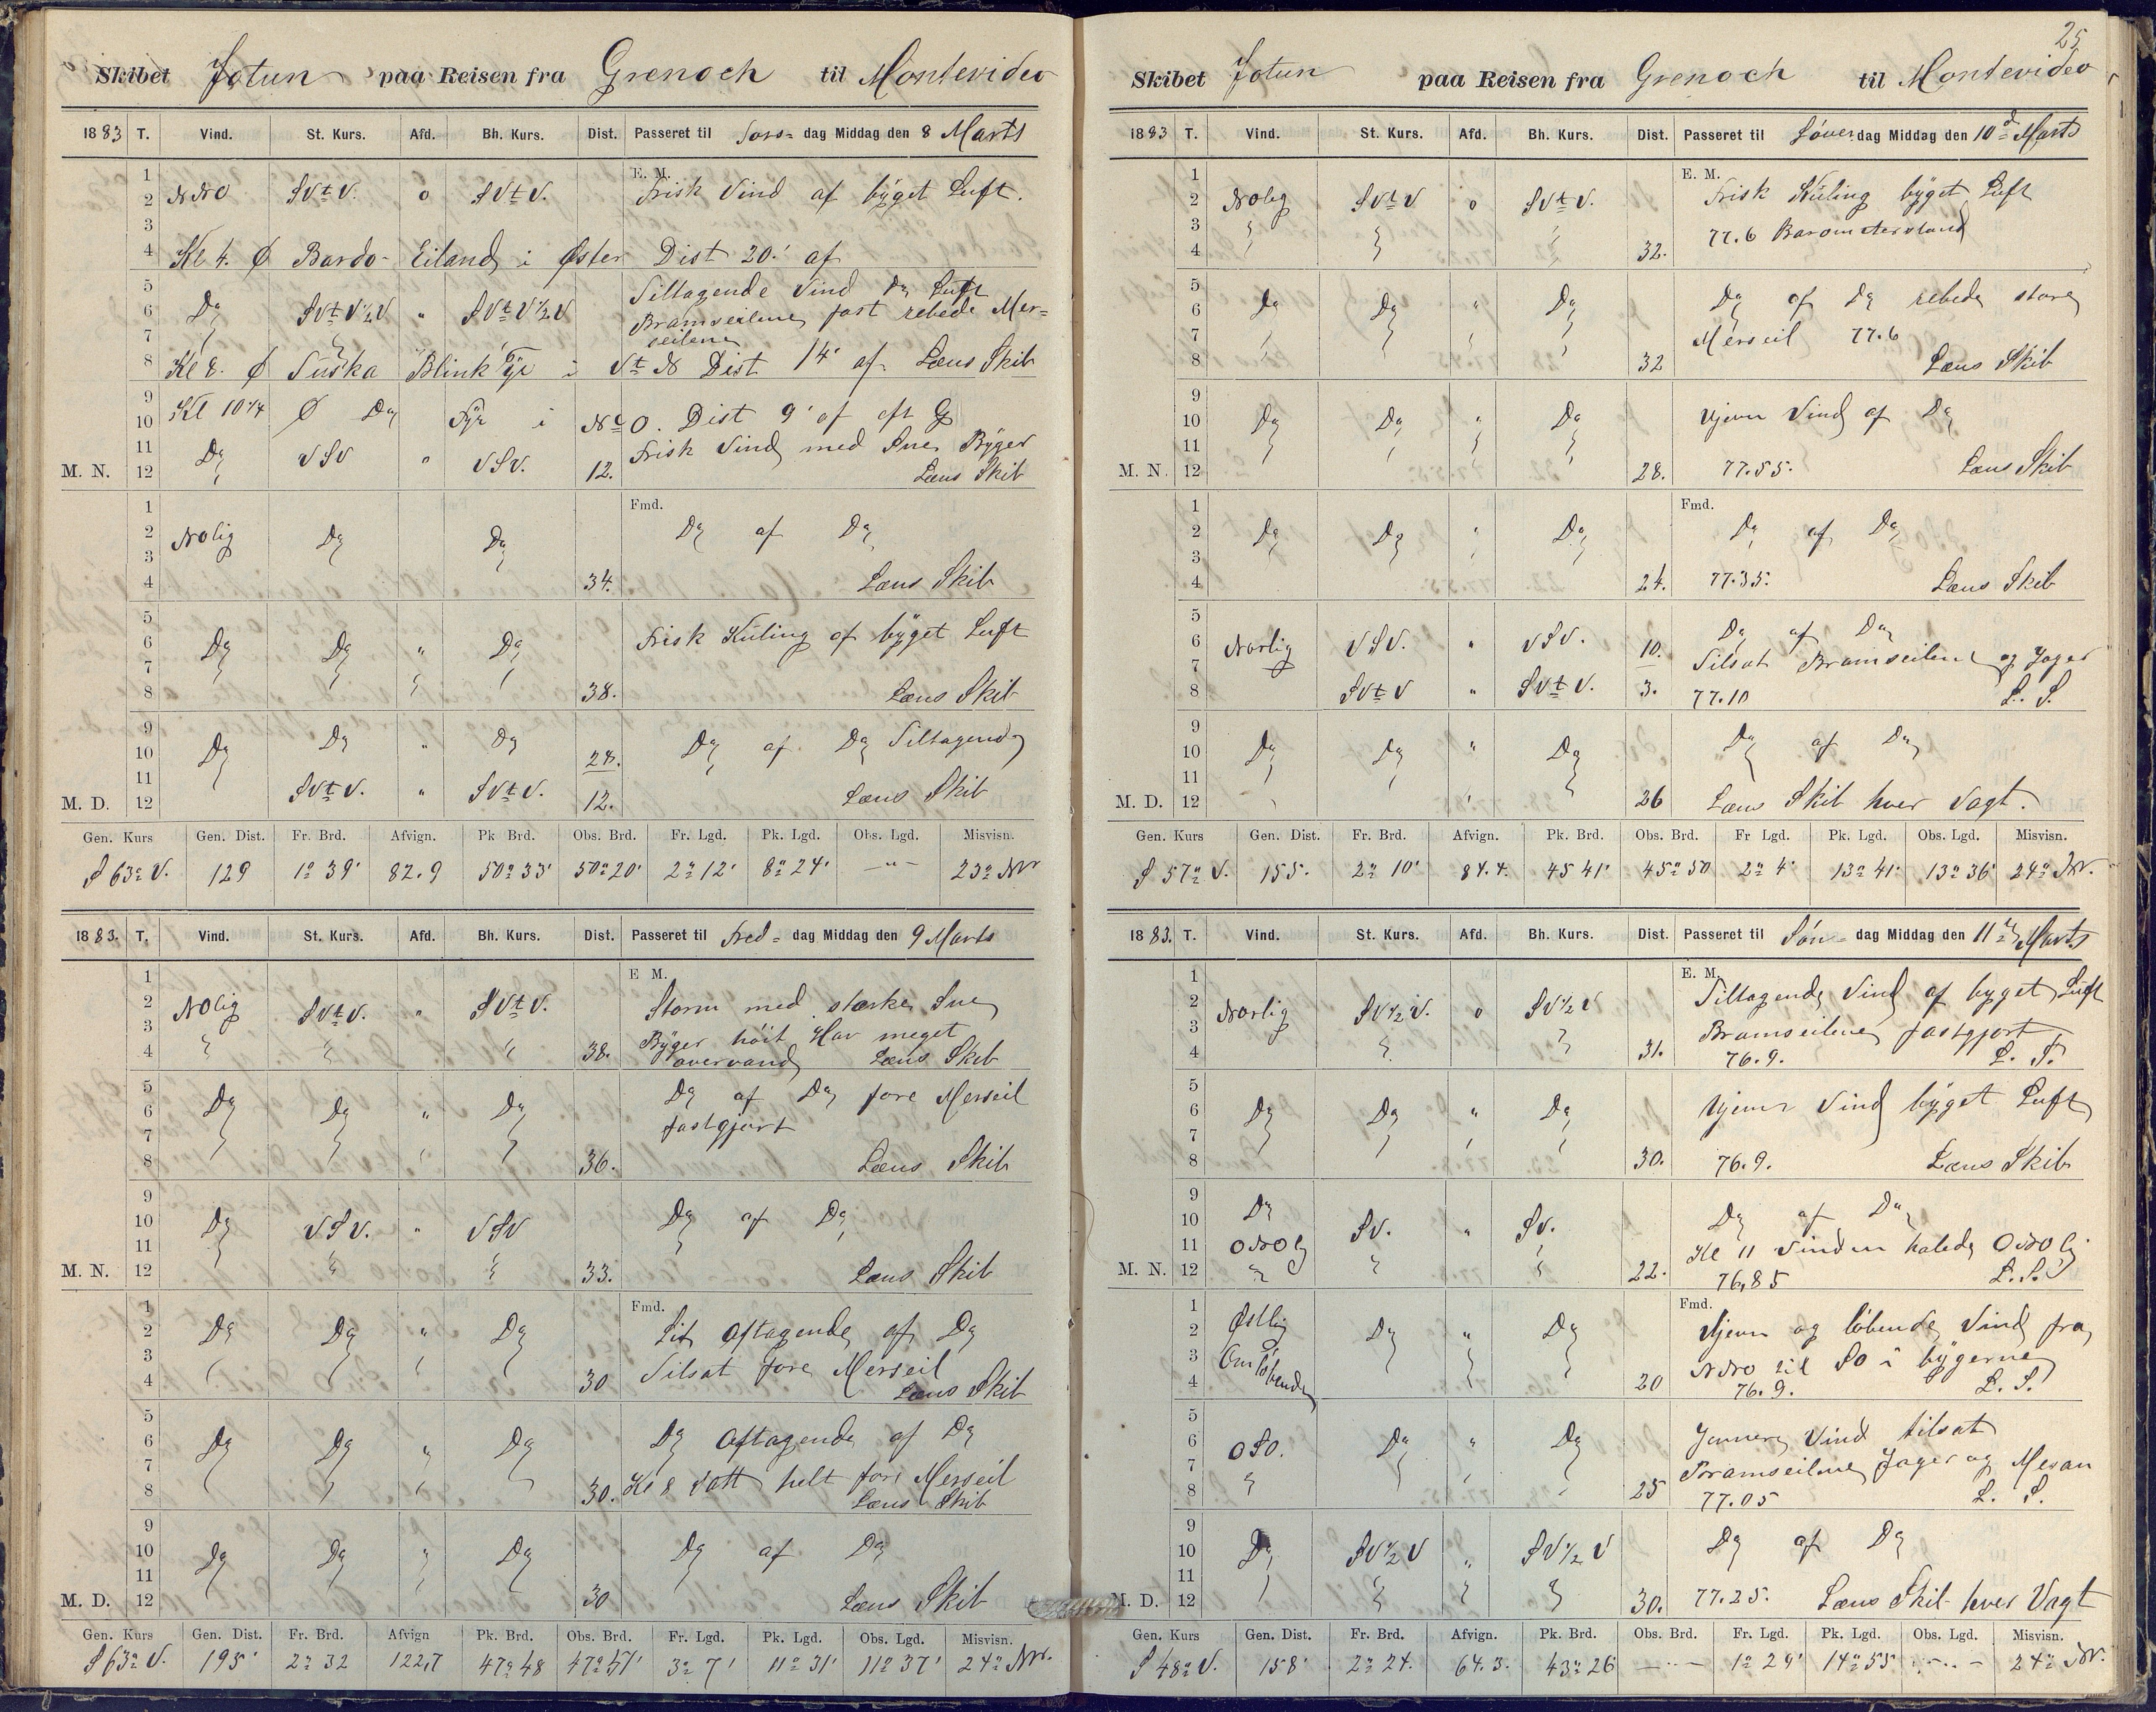 Skibet Jotun paa Reisen fra Grenoch til Montevideo
1883 T. Vind. St. Kurs. Afd. Bh. Kurs. Dist. Passeret til Tors- dag Middag den 8 Marts
E. M.
1
2 NNO SVtV. o SVtV. Frisk Vind af byget Luft.
3
4 Kl 4. Ø Bardo- Eiland i Øster Dist 20' af
5 Tiltagende Vind Do Luft
6 Do SVtV½V " SVtV½V Bramseilene fast rebede Mer=
7 seilene
8 Kl 8. Ø Tuska Blink Fyr i Vt N Dist 14' af Læns Skib
9
10 Kl 10¼ Ø Do Fyr i NtO. Dist 9' af
11 Do VSV " VSV. Frisk Vind med Sne Byger
M. N. 12 12. Læns Skib
Fmd.
1
2 NOlig Do Do Do af Do
3
4 34. Læns Skib
5
6 Do Do " Do Frisk Kuling af byget Luft
7
8 38. Læns Skib
9
10 Do Do " Do 28. Do af Do Tiltagende
11
M. D. 12 SVtV. " SVtV. 12. Læns Skib
Gen. Kurs Gen. Dist. Fr. Brd. Afvign. Pk Brd. Obs. Brd. Fr. Lgd. Pk. Lgd. Obs. Lgd. Misvisn.
S 63° V. 129 1° 39' 82.9 50° 33' 50° 20' 2° 12' 8° 24' –"– 23° NV
1883. T. Vind. St. Kurs. Afd. Bh. Kurs. Dist. Passeret til Fred- dag Middag den 9 Marts
E M.
1
2 NOlig SVtV. " SVtV. Storm med stærke Sne
3 Byger höit Hav meget
4 38. overvand Læns Skib
5
6 Do Do " Do Do af Do fore Merseil
7 fastgjort
8 36. Læns Skib
9
10 Do VSV. " VSV Do af Do
11
M. N. 12 33. Læns Skib
Fmd.
1
2 Do Do " Do Lit aftagende af Do
3 Tilsat fore Merseil
4 30 Læns Skib
5
6 Do Do " Do Do Aftagende af Do
7 Kl 8 satt helt fore Merseil
8 30. Læns Skib
9
10 Do Do " Do Do af Do
11
M. D. 12 30 Læns Skib
Gen. Kurs Gen. Dist. Fr. Brd. Afvign Pk. Brd. Obs. Brd. Fr. Lgd. Pk. Lgd. Obs. Lgd. Misvisn.
S 63° V. 195' 2° 32 122,7 47° 48 47° 51' 3° 7' 11° 31' 11° 37' 24° NV.
25
Skibet Jotun paa Reisen fra Grenoch til Montevideo
1883 T. Vind. St. Kurs. Afd. Bh. Kurs. Dist. Passeret til Löver dag Middag den 10d Marts
E. M.
1
2 NOlig SVtV o SVtV. Frisk Kuling byget Luft
3 77.6 Barometerstand
4 32.
5
6 Do Do " Do Do af Do rebede store
7 Merseil 77.6
8 32 Læns Skib
9
10 Do Do " Do Ujevn Vind af Do
11
M. N. 12 28. 77.55. Læns Skib
Fmd.
1
2 Do Do Do Do af Do
3
4 24. 77.35. Læns Skib
5
6 Norlig VSV. " VSV. 10. Do af Do
7 Tilsat Bramseilene og Jager
8 SVtV " SVtV. 3. 77.10 L. S.
9
10 Do Do " Do Do af Do
11
M. D. 12 26 Læns Skib hver Vagt.
Gen. Kurs Gen. Dist. Fr. Brd. Afvign. Pk. Brd. Obs. Brd. Fr Lgd. Pk. Lgd. Obs. Lgd. Misvisn.
S 57° V. 155. 2° 10' 84.4. 45 41' 45° 50 2° 4' 13° 41' 13° 36' 24° NV.
1883. T. Vind. St. Kurs. Afd. Bh. Kurs. Dist. Passeret til Søn- dag Middag den 11te Marts
E. M.
1
2 Norlig SV½V. o SV½V Tiltagende Vind af byget Luft
3 Bramseilene fastgjort
4 31. 76.9. L. S.
5
6 Do Do " Do Ujevn Vind byget Luft
7
8 30. 76.9. Læns Skib
9
10 Do SV. " SV. Do af Do
11 ONOlg Kl 11 Vinden halede ONOlig
M. N. 12 22. 76,85 L. S.
Fmd.
1 Østlig
2 Do " Do Ujevn og löbende Vind fra
3 Omlöbende NNO til SO i bygerne
4 20 76.9. L. S.
5
6 OSO. Do " Do Jevnere Vind tilsat
7 Bramseilene Jager og Mesan
8 25 77.05 L. S.
9
10 Do SV½V " SV½V Do af Do
11
M. D. 12 30. 77.25. Læns Skib hver Vagt
Gen. Kurs Gen. Dist. Fr. Brd. Afvign. Pk. Brd. Obs. Brd. Fr. Lgd. Pk. Lgd. Obs. Lgd. Misvisn.
S 48° V. 158' 2° 24. 64.3. 43° 26 –"– 1° 29' 14° 55 –"– 24° NV.